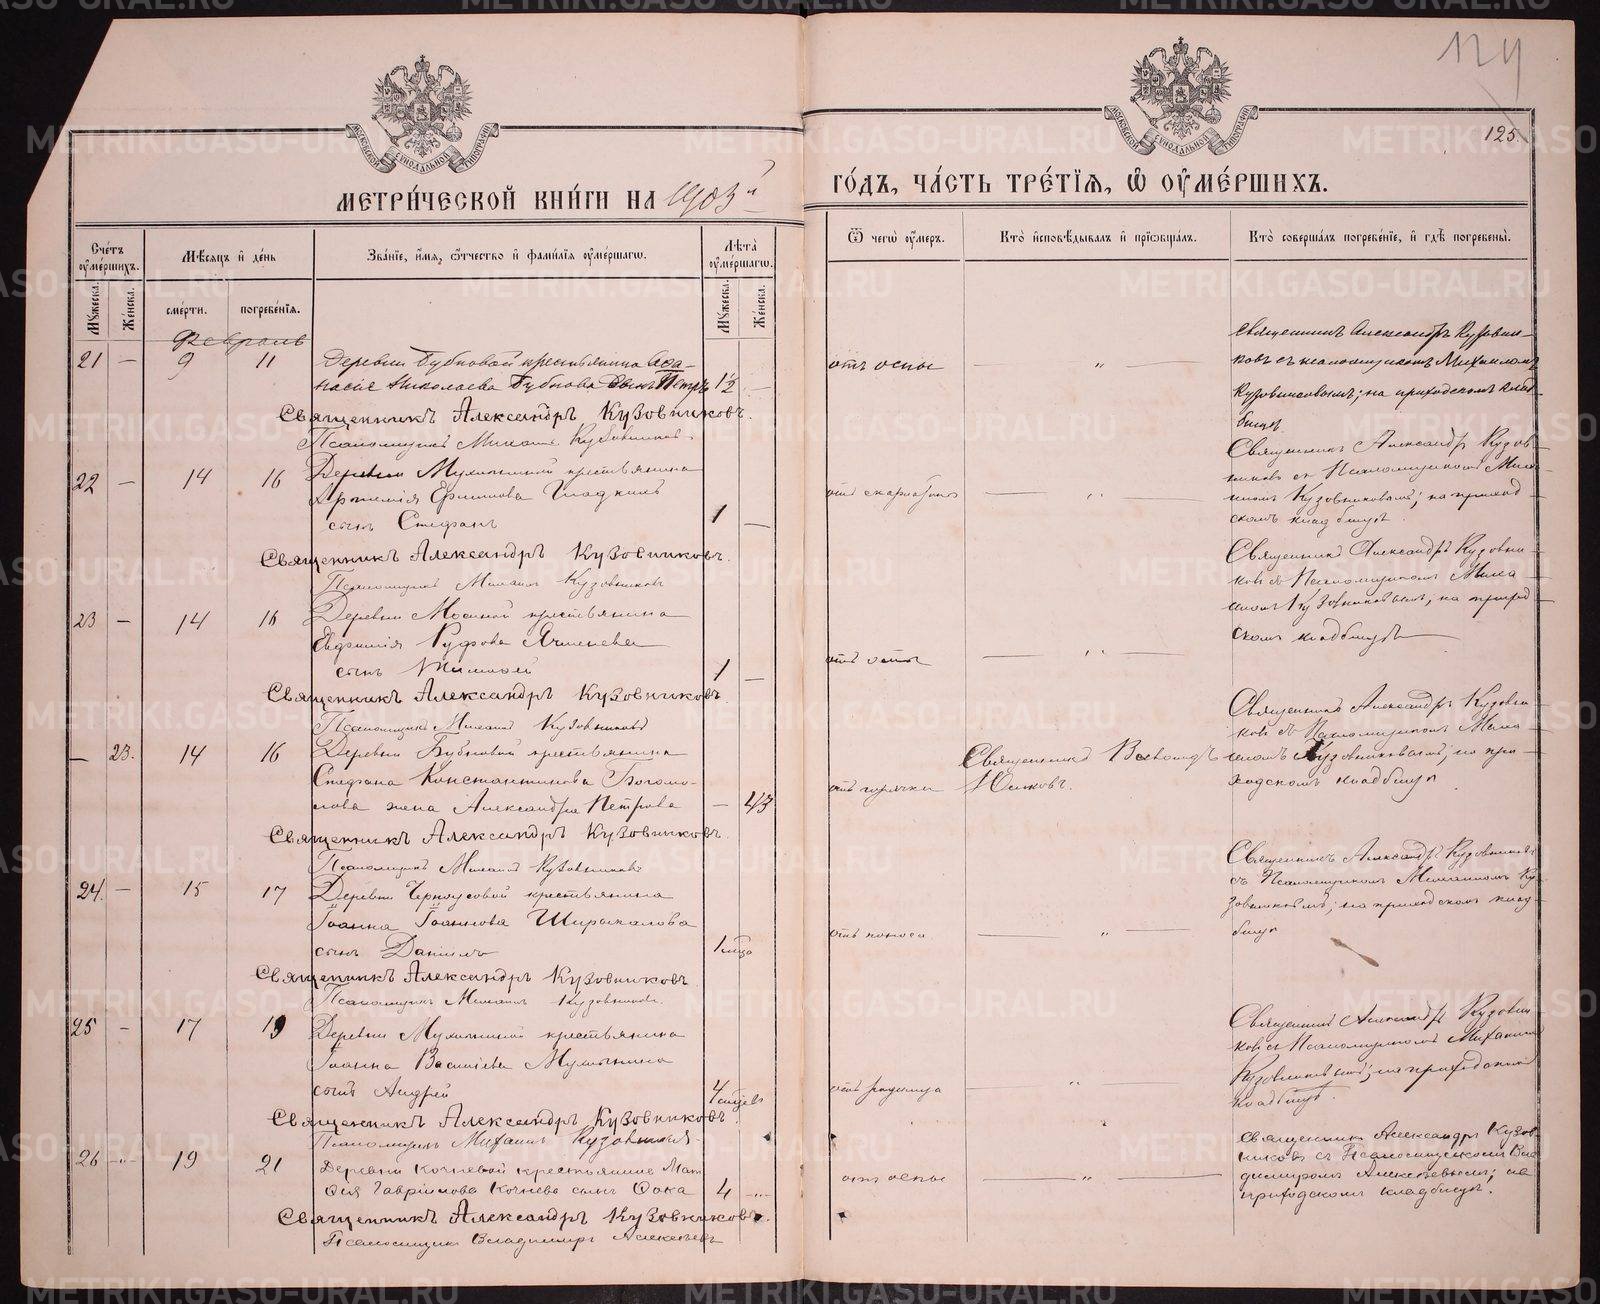 124
125.
МОСКОВСКОЙ СѴНОДАЛЬНОЙ ТИПОГРАФІИ
МОСКОВСКОЙ СѴНОДАЛЬНОЙ ТИПОГРАФІИ
МЕТРИ́ЧЕСКОЙ КНИ́ГИ НА 1903й
ГО́ДЪ, ЧА́СТЬ ТРЕ́ТЇѦ, Ѽ ОУ҆МЕ́РШИХЪ.
Сче́тъ оу҆ме́ршихъ.
Мѣ́сѧцъ и҆ де́нь
Зва́нїе, и҆́мѧ, ѻ҆́тчество и҆ фами́лїѧ оу҆ме́ршагѡ.
Лѣ́та оу҆ме́ршагѡ.
Ѿ чегѡ̀ оу҆́меръ.
Кто̀ и҆сповѣ́дывалъ и҆ прїѡбща́лъ.
Кто̀ соверша́лъ погребе́нїе, и҆ гдѣ̀ погребены̀.
Мꙋ́жеска.
Же́нска.
сме́рти.
погребе́нїѧ.
Мꙋ́жеска.
Же́нска.
Февраль
21 — 9 11 Деревни Бубновой крестьянина Афа-
насія Николаева Бубнова сынъ Петръ 1½ —
отъ оспы — „ —
Священникъ Александръ Кузовни-
ковъ съ псаломщикомъ Михаиломъ
Кузовниковымъ; на приходскомъ клад-
бищѣ
Священникъ Александръ Кузовниковъ.
Псаломщикъ Михаилъ Кузовниковъ.
22 — 14 16 Деревни Мухлыниной крестьянина
Артемія Ефимова Гладкихъ
сынъ Стефанъ 1 —
отъ скарлатины — „ —
Священникъ Александръ Кузов-
никовъ съ Псаломщикомъ Миха-
иломъ Кузовниковымъ; на приход-
скомъ кладбищѣ.
Священникъ Александръ Кузовниковъ.
Псаломщикъ Михаилъ Кузовниковъ
23 — 14 16 Деревни Мосиной крестьянина
Евфимія Руфова Ячменева
сынъ 1 —
отъ оспы — „ —
Священникъ Александръ Кузовни-
ковъ съ Псаломщикомъ Миха-
иломъ Кузовниковымъ, на приход-
скомъ кладбищѣ
Священникъ Александръ Кузовниковъ
Псаломщикъ Михаилъ Кузовниковъ
— 23. 14 16 Деревни Бубновой крестьянина
Стефана Константинова Богомо-
лова жена Александра Петрова — 43
отъ горячки
Священникъ Всеволодъ
Юшковъ.
Священникъ Александръ Кузовни-
ковъ съ Псаломщикомъ Миха-
иломъ Кузовниковымъ; на при-
ходскомъ кладбищѣ
Священникъ Александръ Кузовниковъ.
Псаломщикъ Михаилъ Кузовниковъ
24. — 15 17 Деревни Черноусовой крестьянина
Іоанна Іоаннова Ширыкалова
сынъ Даніилъ 1 мѣс
отъ поноса — „ —
Священникъ Александръ Кузовниковъ
съ Псаломщикомъ Михаиломъ Ку-
зовниковымъ; на приходскомъ клад-
бищѣ
Священникъ Александръ Кузовниковъ
Псаломщикъ Михаилъ Кузовниковъ.
25 — 17 19 Деревни Мухлыниной крестьянина
Іоанна Василіева Мухлынина
сынъ Андрей 4 мѣсяц
отъ родимца — „ —
Священникъ Александръ Кузовни-
ковъ съ Псаломщикомъ Михаиломъ
Кузовниковымъ; на приходскомъ
кладбищѣ.
Священникъ Александръ Кузовниковъ.
Псаломщикъ Михаилъ Кузовниковъ.
26 -„- 19 21 Деревни Кочневой крестьянина Мат-
фея Гавріилова Кочнева сынъ Фока 4 -„-
отъ оспы — „ —
Священникъ Александръ Кузов-
никовъ съ Псаломщикомъ Вла-
димиромъ Алексѣевымъ; на
приходскомъ кладбищѣ.
Священникъ Александръ Кузовниковъ.
Псаломщикъ Владимиръ Алексѣевъ
METRIKI.GASO-URAL.RU